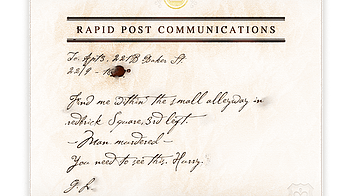 RAPID POST COMMUNICATIONS
To Apt 3, 221B Baker St
22/9 -
Find me within the small alleyway in
redbrick Square, 3rd left.
- Man murdered -
You need to see this. Hurry.
G. L.